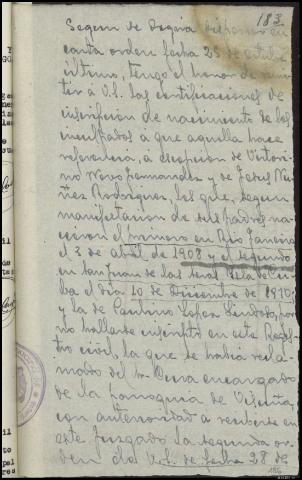 183
Segun se digna disponer en
carta orden fecha 25 de octubre
último, tengo el honor de remi-
tir a V.S. las certificaciones de
inscripción de nacimiento de los
inculpados a que aquella hace
referencia, a excepción de Victori-
no Novo Fernandez y de Jesus Nu-
ñez Rodriguez, los que, segun
manifestacion de sus padres na-
cieron el primero en Rio Janeiro
el 3 de abril de 1908 y el segundo
en San Juan de las Isla de Cu-
ba el dia 10 de Diciembre de 1910,
y la de Paulino Lopez por
no hallarse inscrito en este Regis-
tro civil, la que se habia recla-
mado del Sr. Cura encargado
de la parroquia de
con anterioridad a recibirse en
este Juzgado la segunda or-
den de V.S. de fecha 28 de
186